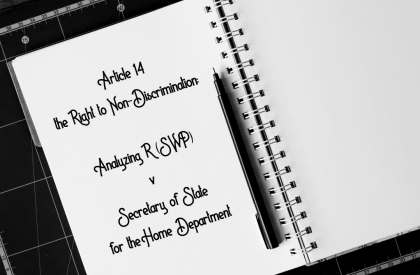 Article 14
the Right to Non-Discrimination:
Analyzing R (SWP)
v
Secretary of State
for the Home Department